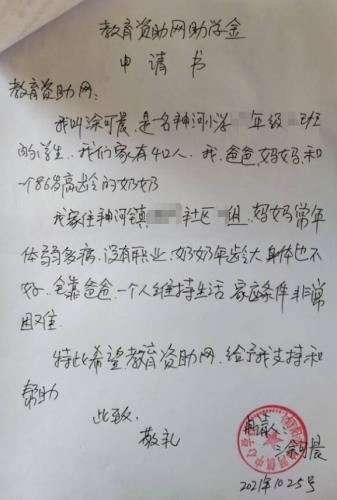 教育资助网助学金
申请书
教育资助网:
我叫涂可晨,是一名神河小学 年级 班
的学生.我们家有4口人.我,爸爸,妈妈,和
一个86岁高龄的奶奶
我家住神河镇 社区 组,妈妈常年
体弱多病.没有职业.奶奶年龄大身体也不
好.全靠爸爸一个人维持生活.家庭条件非常
困难.
特此希望教育资助网.给予我支持和
帮助
此致.
敬礼
申请人:
涂可晨
2021年10.25号